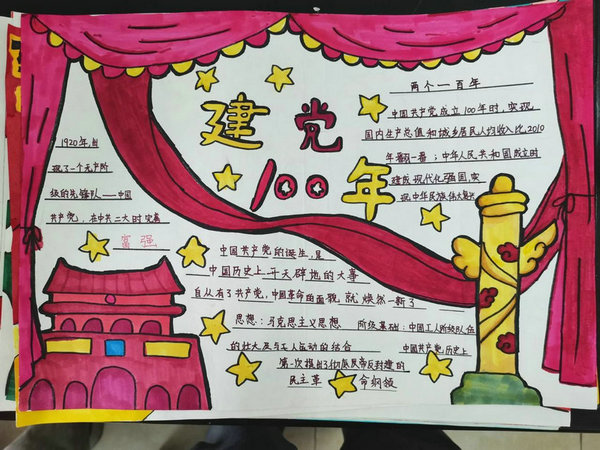 建党
100年
两个一百年
中国共产党成立100年时,实现
国内生产总值和城乡居民人均收入比2010
年翻一番;中华人民共和国成立时
建成现代化强国,实
现中华民族伟大复兴
1920年,由
现了一个无产阶
级的先锋队——中国
共产党,在中共二大时完善
富强
中国共产党的诞生,是
中国历史上开天辟地的大事
自从有了共产党,中国革命的面貌,就焕然一新了
思想:马克思主义思想 阶级基础:中国工人阶级队伍
的壮大及与工人运动的结合 中国共产党历史上
第一次提出了彻底民帝反封建的
民主革命纲领